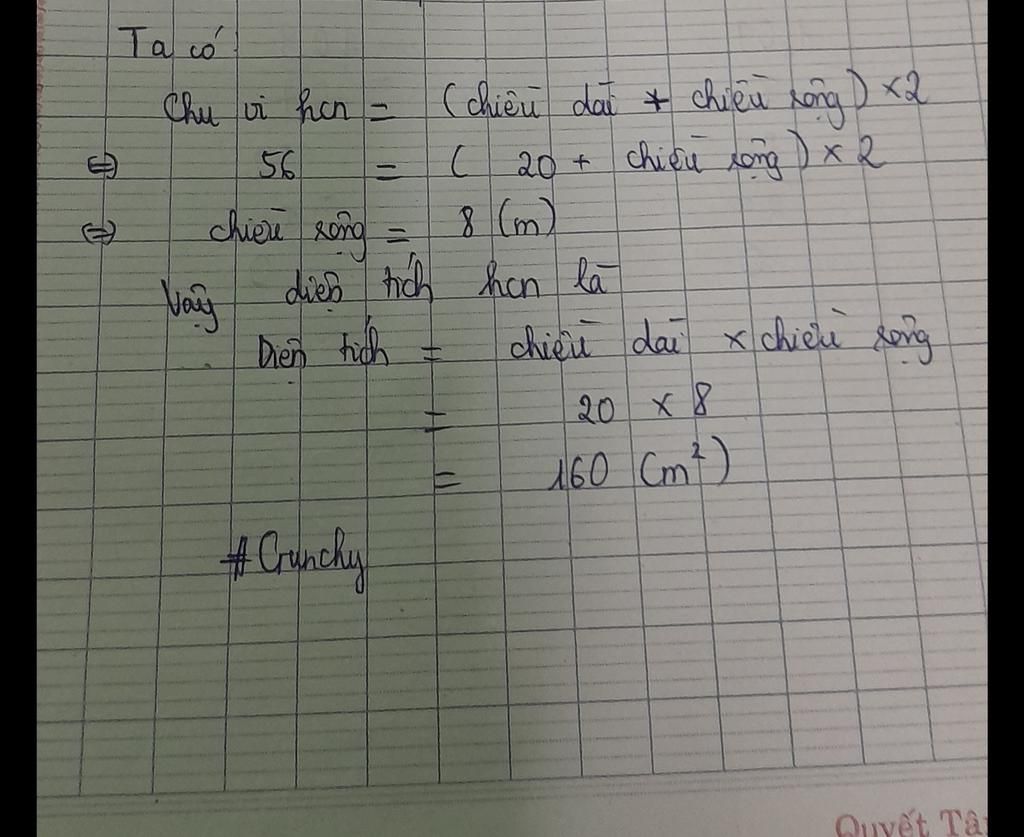 Ta có
Chu vi hcn = (chiều dài + chiều rộng) × 2
⇔ 56 = ( 20 + chiều rộng) × 2
⇔ chiều rộng = 8 (m)
Vậy diện tích hcn là
Diện tích = chiều dài × chiều rộng
= 20 × 8
= 160 (m²)
#Crunchy
Quyết Tâ